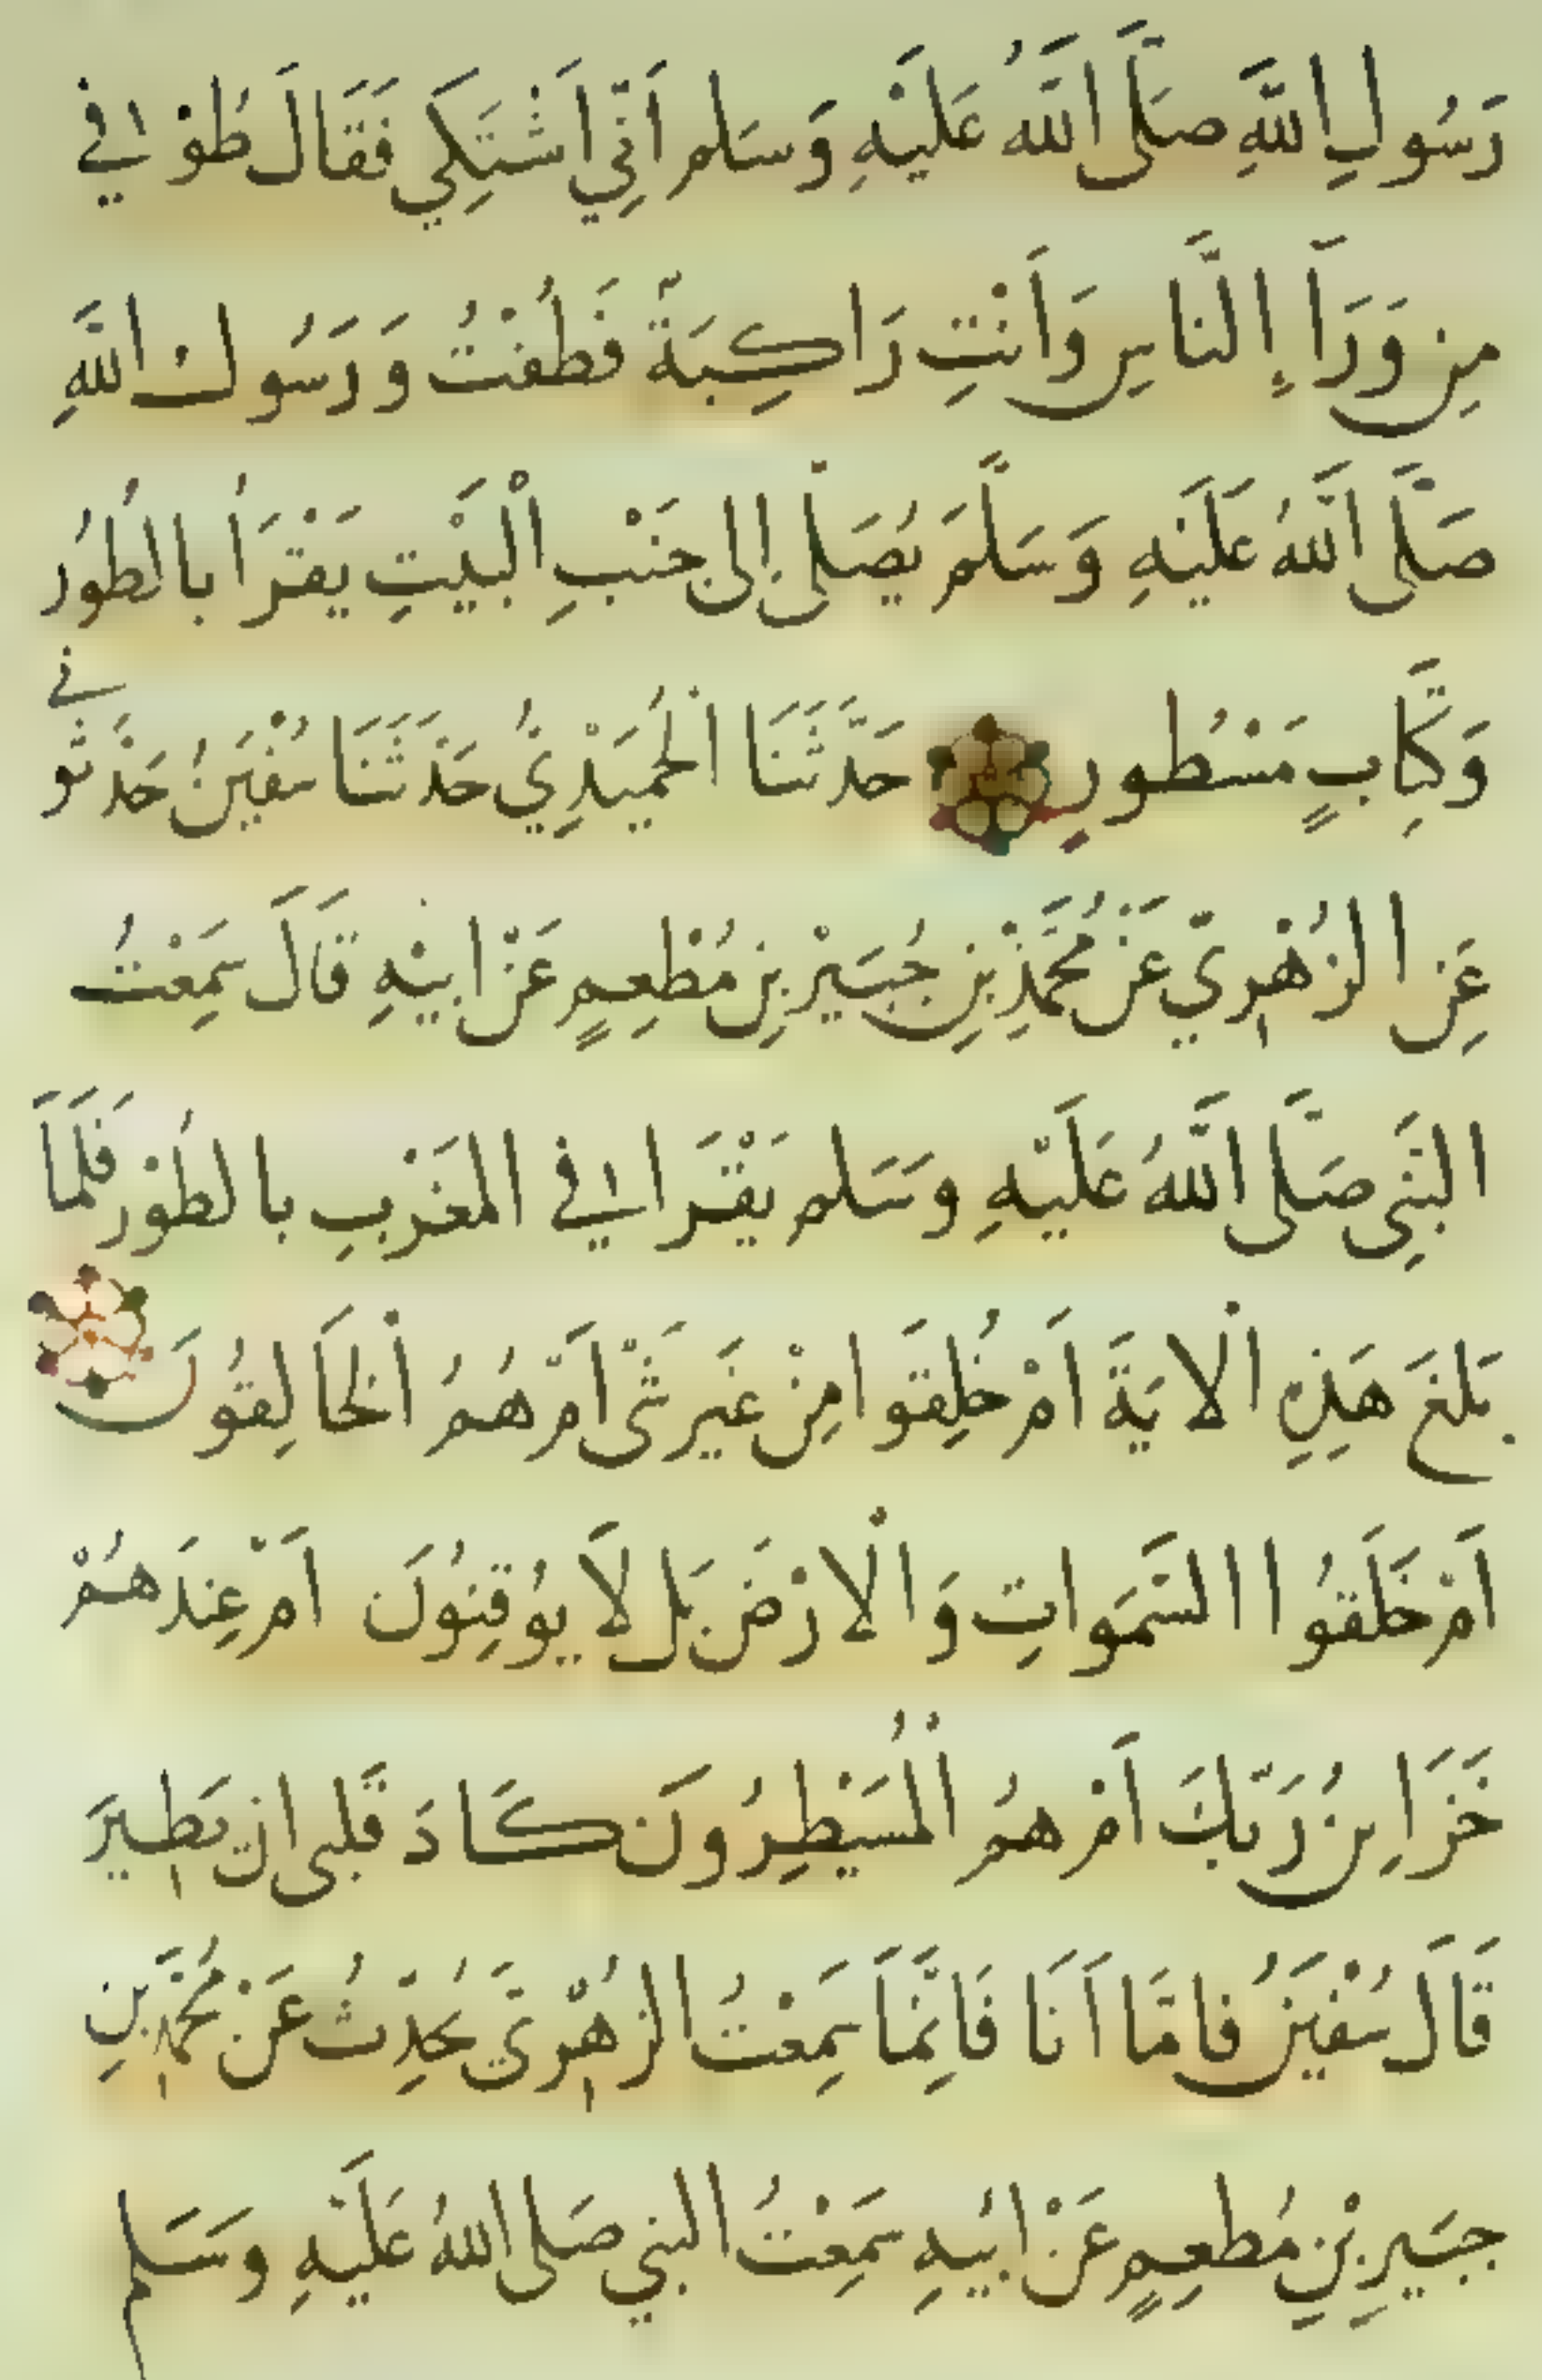 رَسُولِ اللَّهِ صَلَّى اللَّهُ عَلَيْهِ وَسَلم اَنِّي اَشْتَكِي فَقَالَ طُوْ افِي
مِن وَرَآءِ النَّاسِ وَاَنْتِ رَاكِبَةٌ فَطُفْتُ وَرَسُولُ اللَّهِ
صَلَّى اللَّهُ عَلَيْهِ وَسَلَّمَ يُصَلِّى إِلى جَنْبِ الْبَيْتِ يَقْرَأُ بالطُورِ
وَكِتَابٍ مَسْطُورٍ حَدَّثَنَا الْحُمَيْدِيُّ حَدَّثَنَا سُفْيَنُ حَدَّثُونِي
عَنِ الزُهْرِيِّ عَنْ مُحَمَّدِ بْنِ جُبَيْرِ بنِ مُطْعِمٍ عَنْ ابِيْهِ قَالَ سَمِعْتُ
النَّبِيَّ صَلَّى اللَّهُ عَلَيْهِ وسَلم يَقْرَا فِي المَغْرِبِ بالطُوْرِ فَلَمَّا
بَلغَ هَذِهِ الْايَةَ اَمْ خُلِقُوا مِنْ غَيْرِ شَىْ اَمْ هُمُ الْخَالِقُونَ
اَمْ خَلَقُوا السَّمَواتِ وَالْارْضَ بَل لَا يُوقِنُونَ اَمْ عِنْدَهُمْ
خَزَاىِنُ رَبِّكَ اَمْ هُمُ الْمُسَيْطِرُونَ كَادَ قَلبى ان يَطِيرَ
قَالَ سُفْيَنُ فَامَّا اَنَا فَاِنَّمَا سَمِعْتُ الزُهْرِيَّ يُحَدِّثُ عَنْ مُحَمَّدِ بنِ
جبَيرِ بْنِ مُطعِمٍ عَنْ ابيْهِ سَمِعْتُ النبي صَلى اللهُ عَلَيْهِ وسَلم